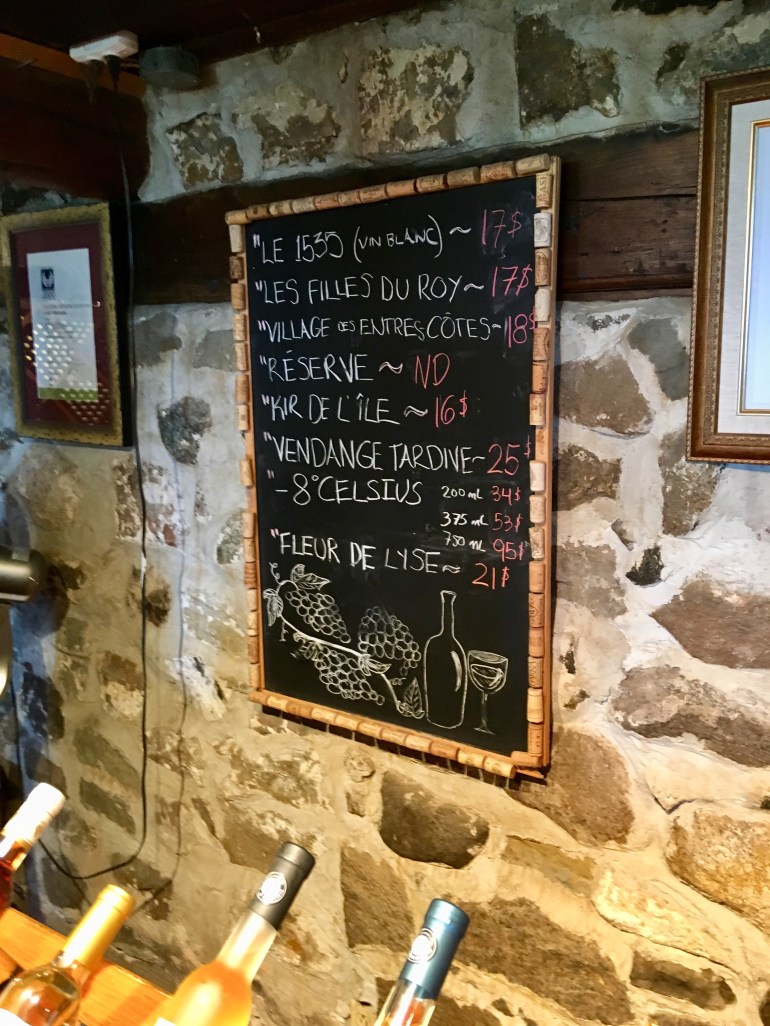 "LE 1535 (VIN BLANC) ~ 17$
"LES FILLES DU ROY ~ 17$
"VILLAGE DES ENTRES CÔTES ~ 18$
"RÉSERVE ~ ND
"KIR DE L'ÎLE ~ 16$
"VENDANGE TARDIVE ~ 25$
"-8°CELSIUS 200 mL 34$
375 mL 53$
750 mL 95$
"FLEUR DE LYSE ~ 21$